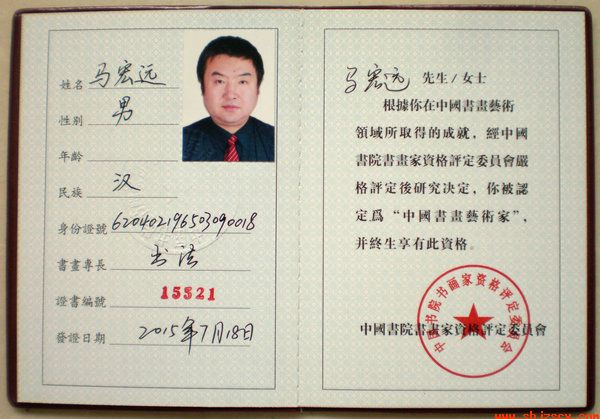 姓名 马宏远
性别 男
年龄
民族 汉
身份證號 620402196503090018
書畫專長 书法
證書編號 15521
發證日期 2015年7月18日
马宏远 先生/女士
根據你在中國書畫藝術
領域所取得的成就，經中國
書院書畫家資格評定委員會嚴
格評定後研究决定，你被認
定爲“中國書畫藝術家”，
并終生享有此資格。
中国书院书画家资格评定委员会
中國書院書畫家資格評定委員會
www.shjzssx.com